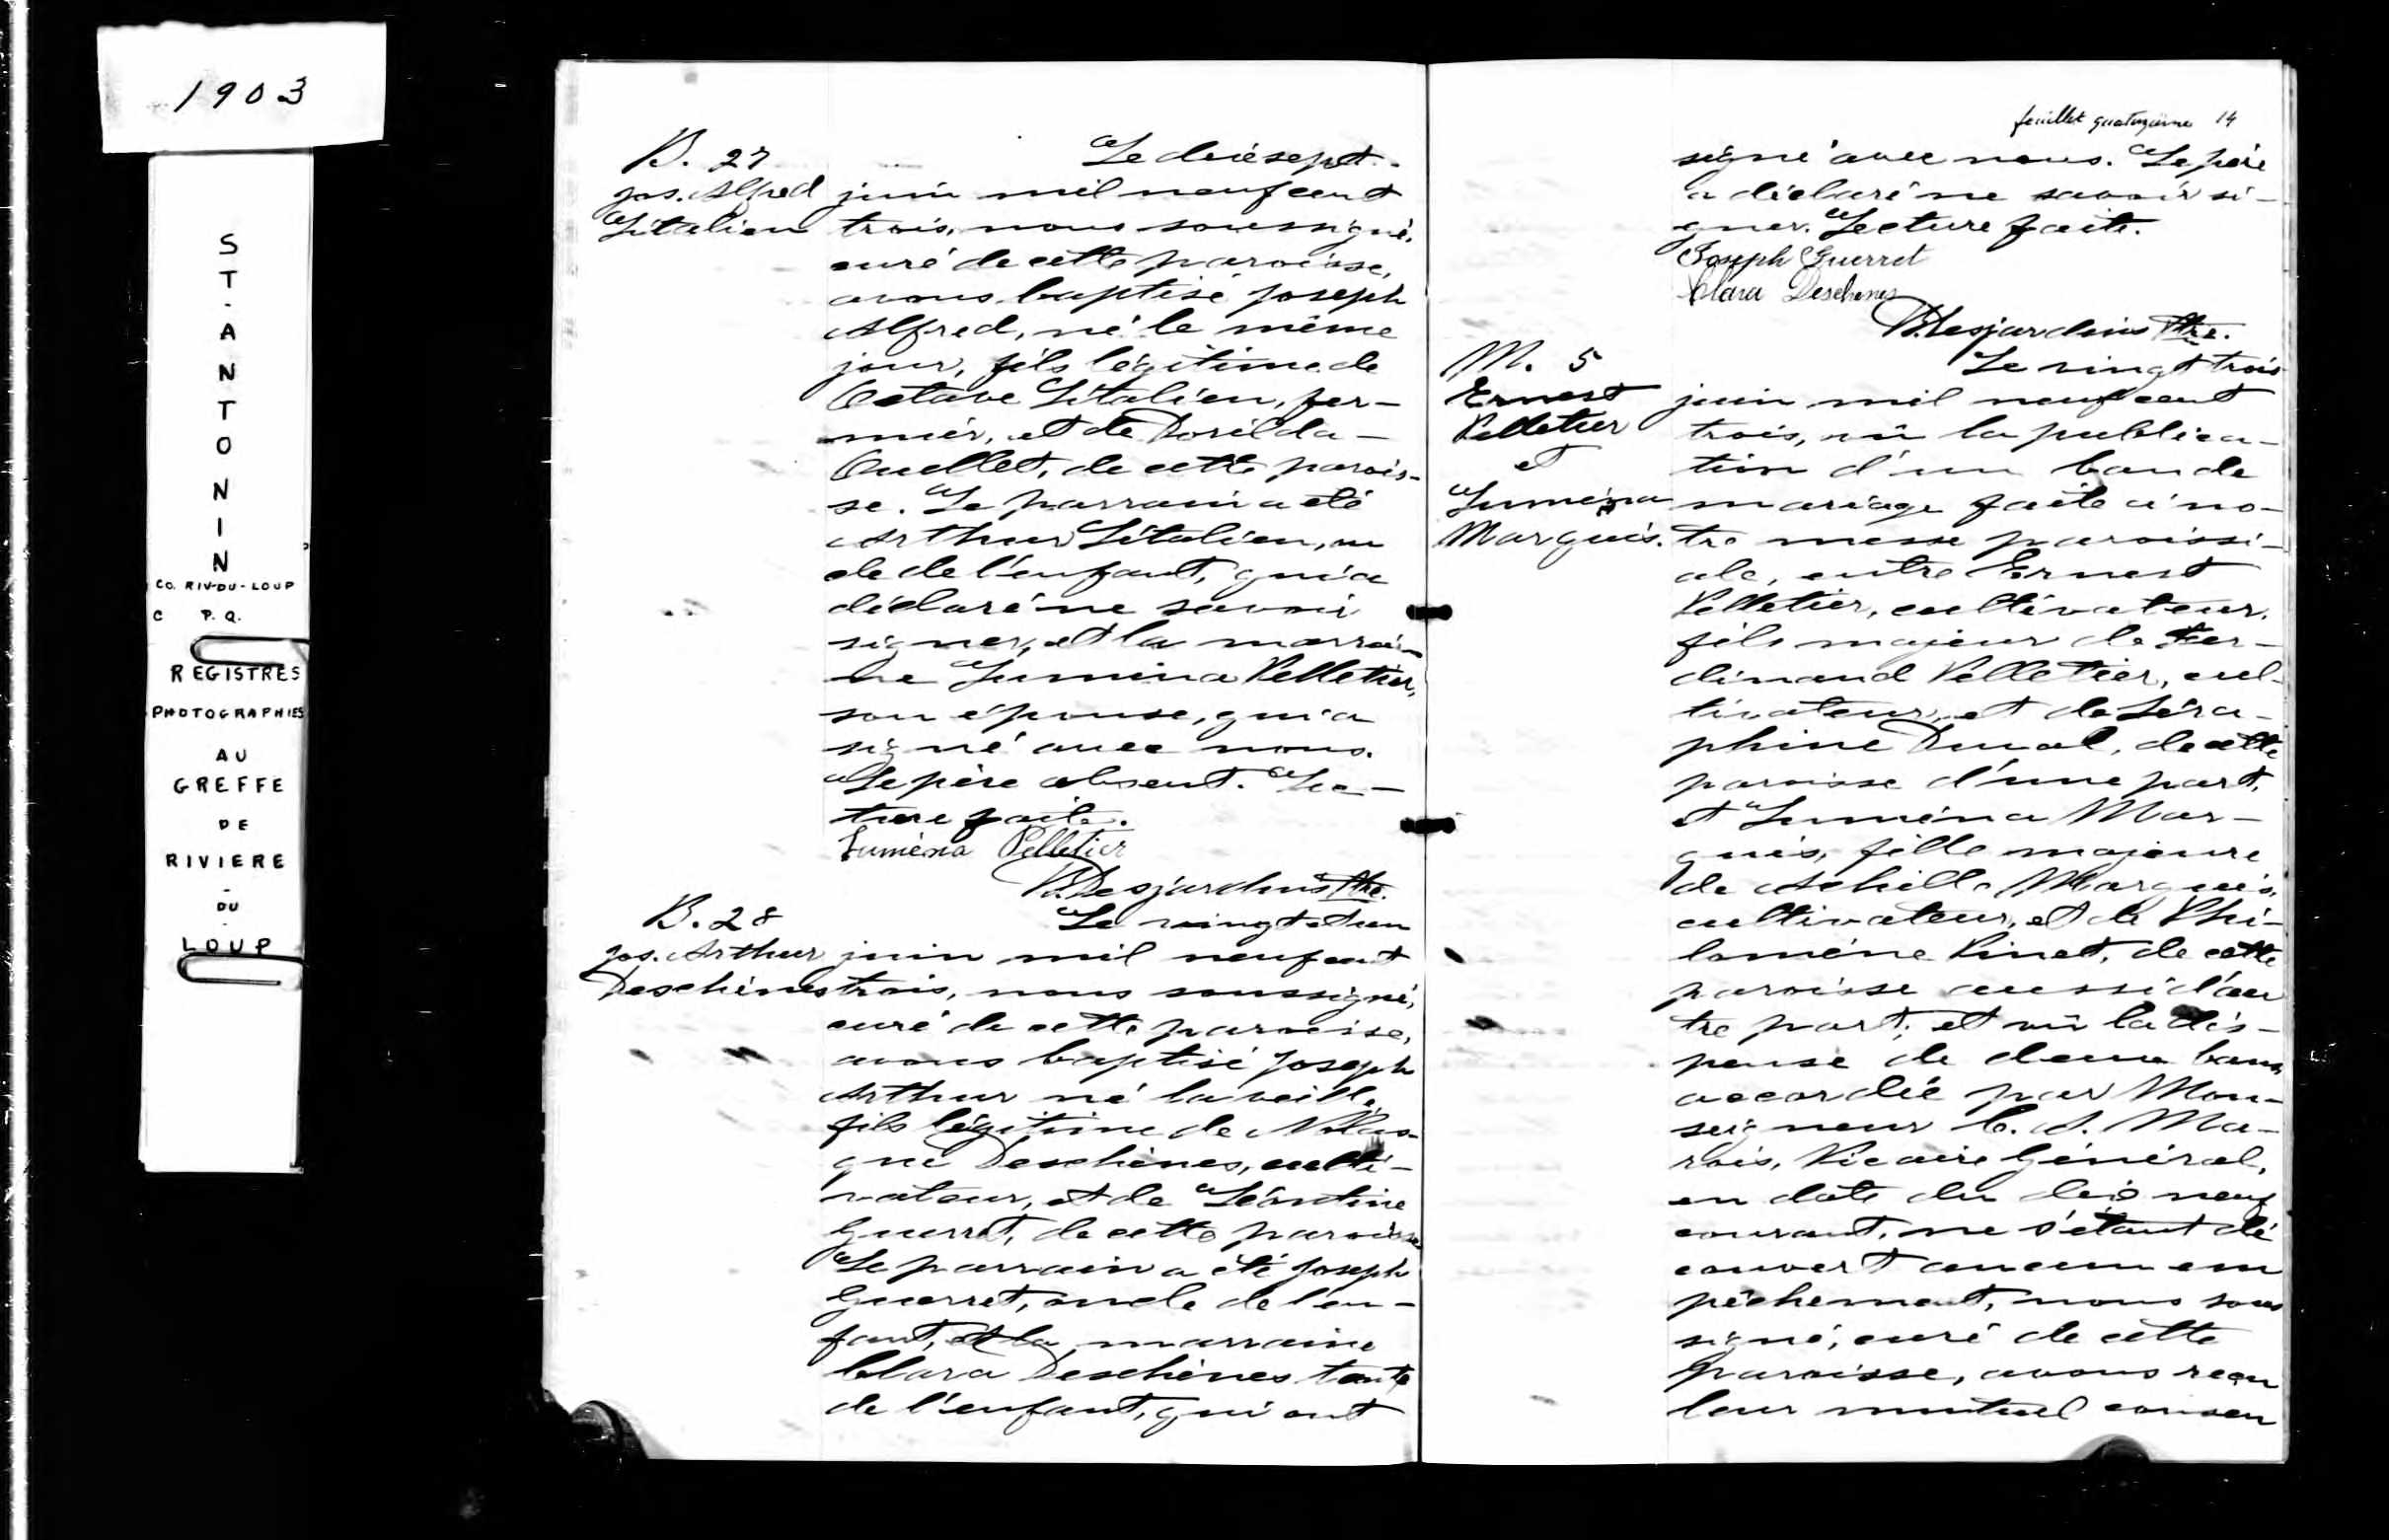 1903
ST-ANTONIN
CO. RIV-DU-LOUP
C P.Q.
REGISTRES
PHOTOGRAPHIES
AU
GREFFE
DE
RIVIERE
-
DU
-
LOUP
B. 27
Jos. Alfred
Litalien
Le dix sept
juin mil neuf cent
trois, nous soussigné,
curé de cette paroisse,
avons baptisé Joseph
Alfred, né le même
jour, fils légitime de
Octave Litalien, fer-
mier, et de Dorilda
Ouellet, de cette parois-
se. Le parrain a été
Arthur Litalien, on
cle de l'enfant, qui a
déclaré ne savoir
signer, et la marrai-
ne Lumina Pelletier,
son épouse, qui a
signé avec nous.
Le père absent. Lec-
ture faite.
Luména Pelletier
Desjardins Ptre.
B. 28
Jos. Arthur
Deschènes
Le vingt et un
juin mil neuf cent
trois, nous soussigné,
curé de cette paroisse,
avons baptisé Joseph
Arthur né la veille,
fils légitime de Nolas-
que Deschènes, culti-
vateur, et de Léontine
Guerret, de cette paroisse
Le parrain a été Joseph
Guerret, oncle de l'en-
fant, et la marraine
Clara Deschènes tante
de l'enfant, qui ont
feuillet quatorzième 14
signé avec nous. Le père
a déclaré ne savoir si-
gner. Lecture faite.
Joseph Guerret
Clara Deschenes
Desjardins Ptre.
M. 5
Ernest
Pelletier
et
Luména
Marquis.
Le vingt trois
juin mil neuf cent
trois, vû la publica-
tion d'un ban de
mariage faite à no-
tre messe paroissi-
ale, entre Ernest
Pelletier, cultivateur,
fils majeur de Fer-
dinand Pelletier, cul-
tivateur, et de Séra-
phine Duval, de cette
paroisse d'une part,
et Luména Mar-
quis, fille majeure
de Achille Marquis,
cultivateur, et de Phi-
lomène Pinet, de cette
paroisse aussi d'au
tre part; et vû la dis-
pense de deux bans
accordée par Mon-
seigneur C. A. Ma-
rois, Vicaire Général,
en date du dix neuf
courant, ne s'étant dé
couvert aucun em
pêchement, nous sous
signé, curé de cette
paroisse, avons reçu
leur mutuel consen